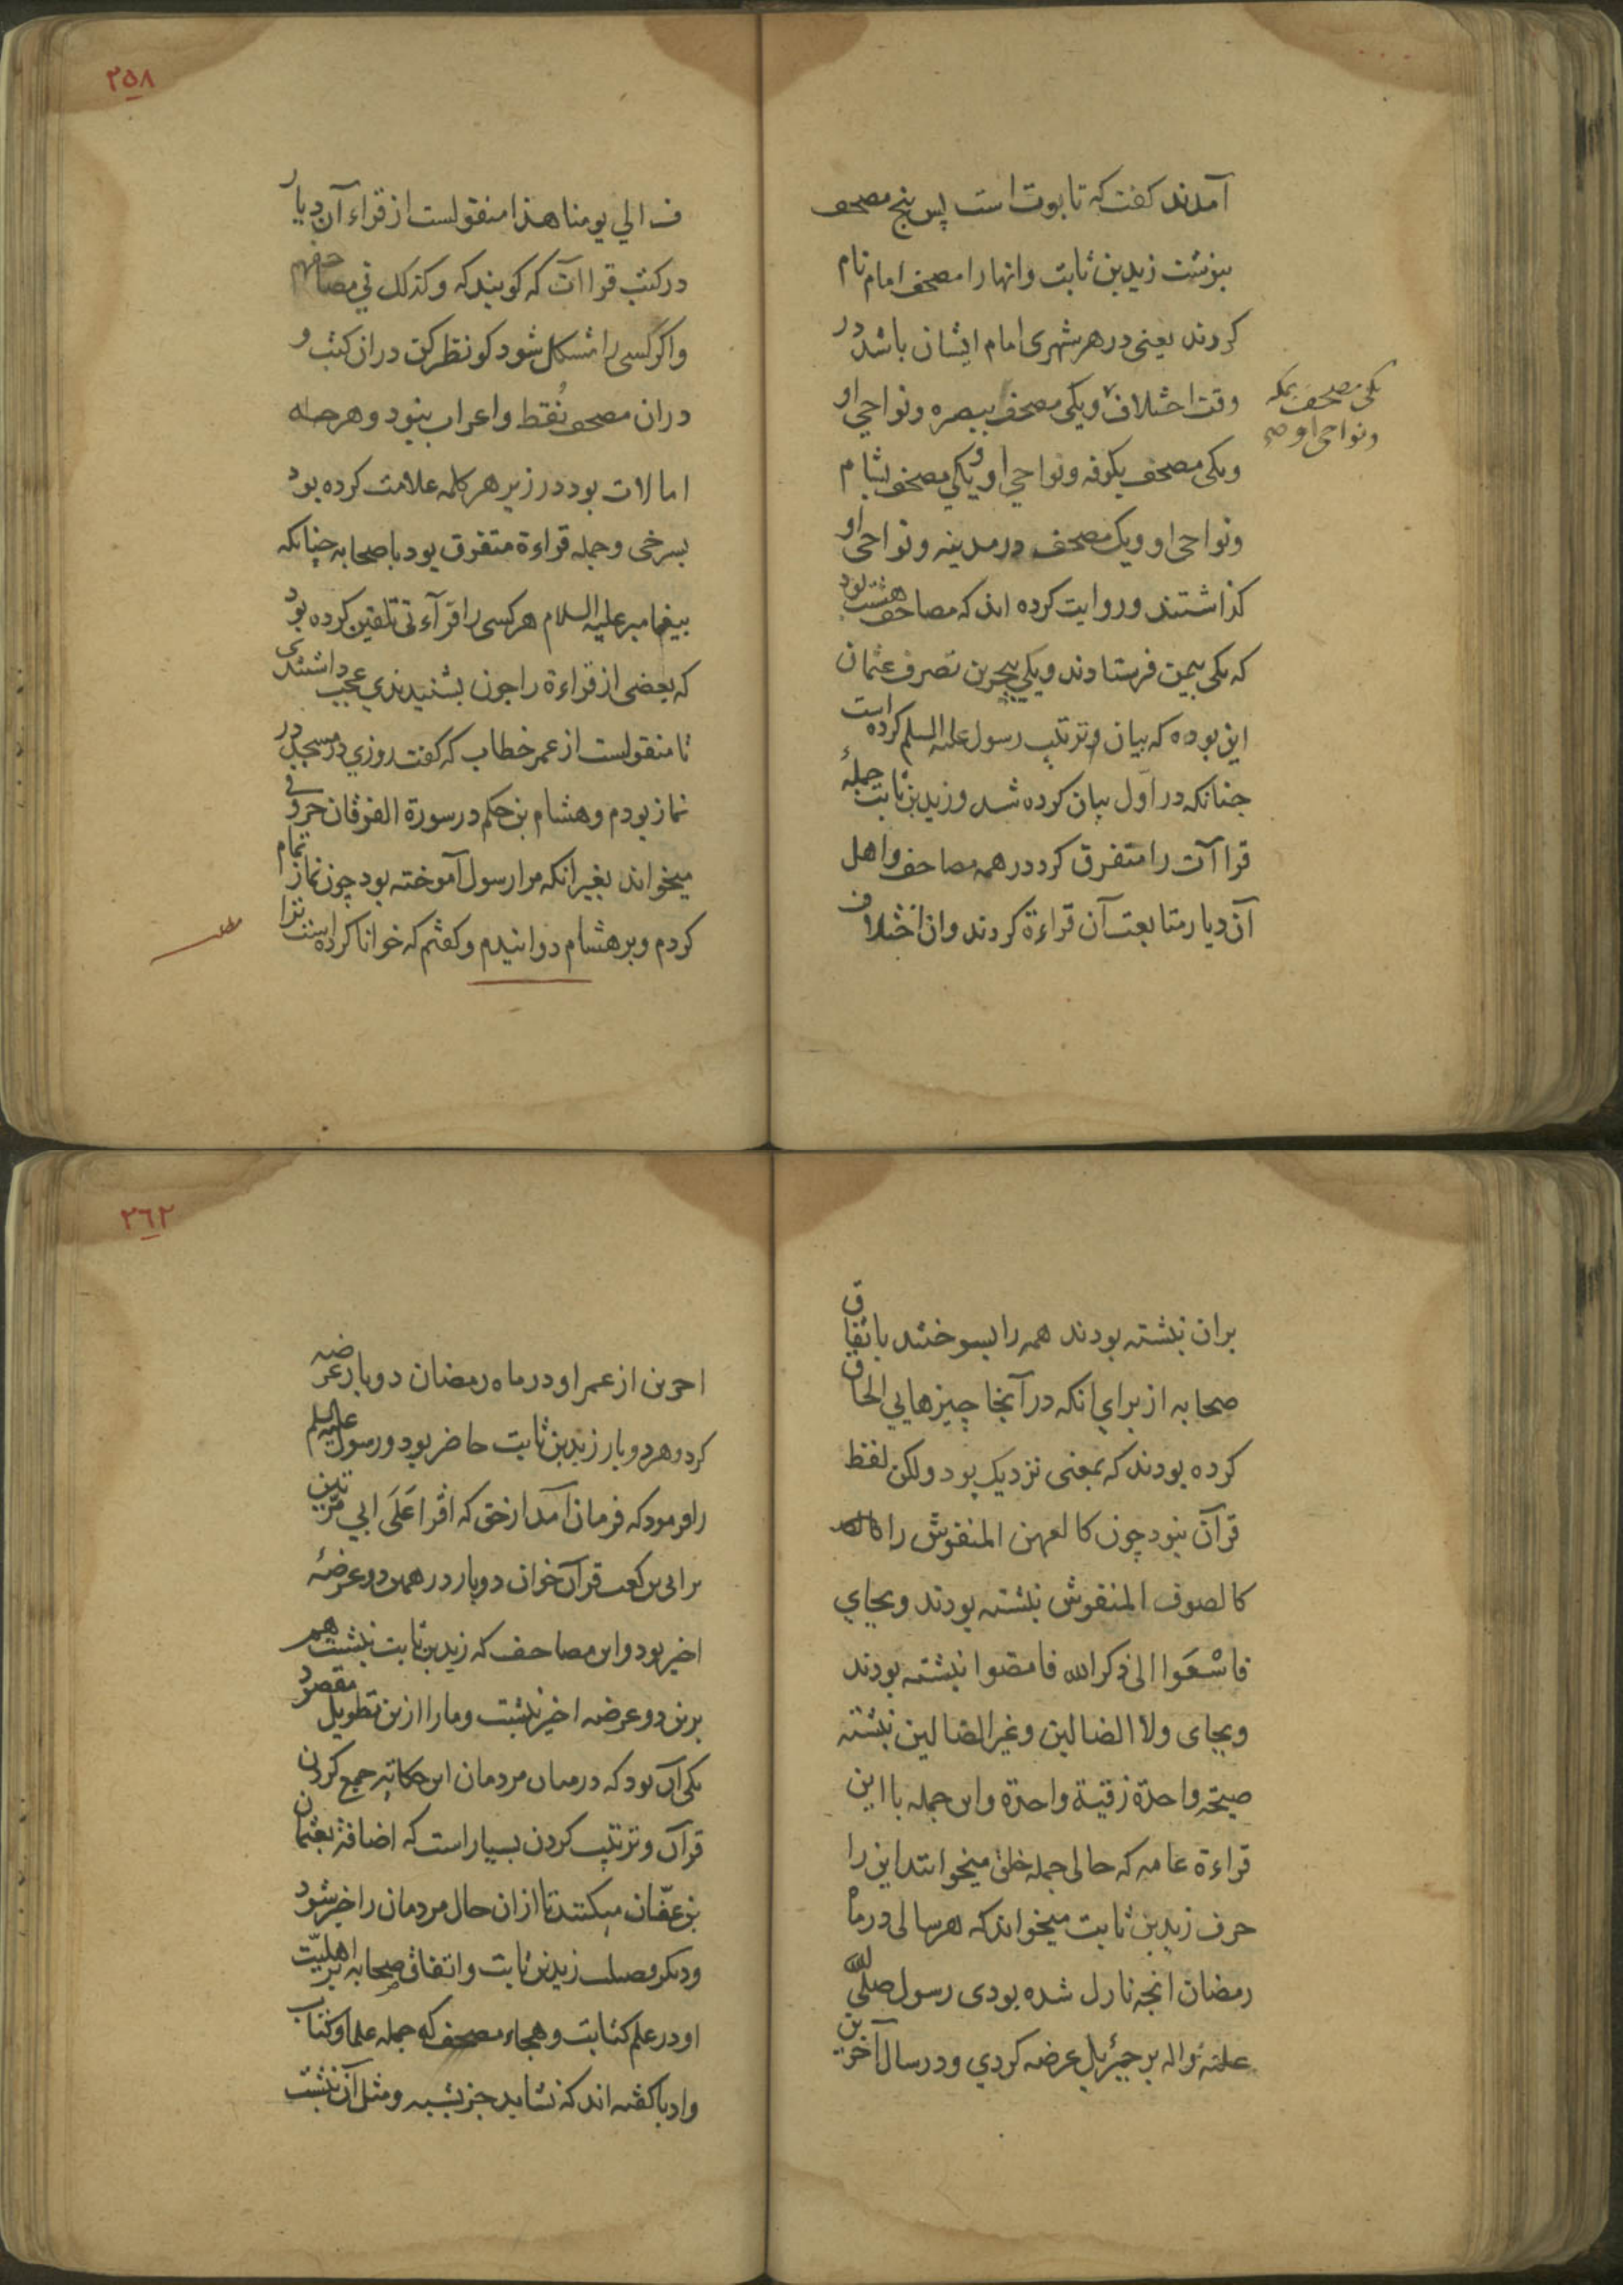 آمدند كفت كه تابوت است پس پنج مصحف
بنوشت زيد بن ثابت وانها را مصحف امام نام
كردند يعنى در هر شهرى امام ايشان باشد در
وقت اختلاف ويكى مصحف ببصره ونواحى او
يكى مصحف بمكه
ونواحى او صح
ويكى مصحف بكوفه ونواحي او ويكي مصحف بشام
ونواحى او ويك مصحف در مدينه ونواحى او
كذاشتند وروايت كرده اند كه مصاحف هشت بود
كه يكى بيمن فرستادند ويكي ببحرين تصرف عثمان
اين بوده كه بيان وترتيب رسول عليه السلم كرده است
چنانكه در اول بيان كرده شد وزيد بن ثابت جملهٔ
قراآت را متفرق كرد در همه مصاحف واهل
آن ديار متابعت آن قراءة كردند وان اختلاف
٢٥٨
ف الي يومنا هذا منقولست از قراء آن ديار
در كتب قراآت كه كويند كه وكذلك في مصاحفهم
واكر كسى را مشكل شود كو نظر كن دران كتب و
دران مصحف نُقط واعراب نبود وهر جا كه
امالات بود در زير هر كلمه علامت كرده بود
بسرخى وجمله قراءة متفرق بود با صحابه چنانكه
بيغامبر عليه السلام هر كسى را قرآءتى تلقين كرده بود
كه بعضى از قراءة را چون بشنيدندي عجب داشتندى
تا منقولست از عمر خطاب كه كفت روزي در مسجد در
نماز بودم وهشام بن حكم در سورة الفرقان حروفى
ميخواند بغير انكه مرا رسول آموخته بود چون نماز تمام
كردم وبر هشام دوانيدم وكفتم كه خوانا كرده است ترا
بران نبشته بودند همه را بسوختند باتفاق
صحابه از براي انكه در آنجا چيزهايي الحاق
كرده بودند كه بمعنى نزديك بود ولكن لفظ
قرآن نبود چون كالعهن المنفوش را
كالصوف المنفوش نبشته بودند وبجاي
فاسْعَوا الى ذكر الله فامضوا نبشته بودند
وبجاى ولا الضالين وغير الضالين نبشته
صيحة واحدة زقية واحدة واين جمله با اين
قراءة عامه كه حالى جمله خلق ميخوانند اين را
حرف زيد بن ثابت ميخواند كه هر سالى در ماه
رمضان انچه نازل شده بودى رسول صلّى الله
عليه واله بر جبرئيل عرضه كردي ودر سال آخرين
٢٦٢
اخرين از عمر او در ماه رمضان دو بار عرضه
كرد وهر دو بار زيد بن ثابت حاضر بود ورسول عليه السلم
را فرمود كه فرمان آمد از حق كه اقرا عَلَى ابي مرّتين
بر ابى بن كعب قرآن خوان دو بار در همين دو عرضهٔ
اخير بود واين مصاحف كه زيد بن ثابت نبشت هم
برين دو عرضه اخير نبشت ومارا ازين تطويل مقصود
يكى آن بود كه در ميان مردمان اين حكاية جمع كردن
قرآن وترتيب كردن بسيار است كه اضافة بعثمان
بن عفّان ميكنند تا ازان حال مردمان را خبر شود
وديكر فضيلت زيد بن ثابت واتفاق صحابه بر اهليّت
او در علم كتابت وهجاء مصحف كه جمله علما وكتاب
وادبا كفته اند كه نشايد جز نبشته ومثل آن نبشت